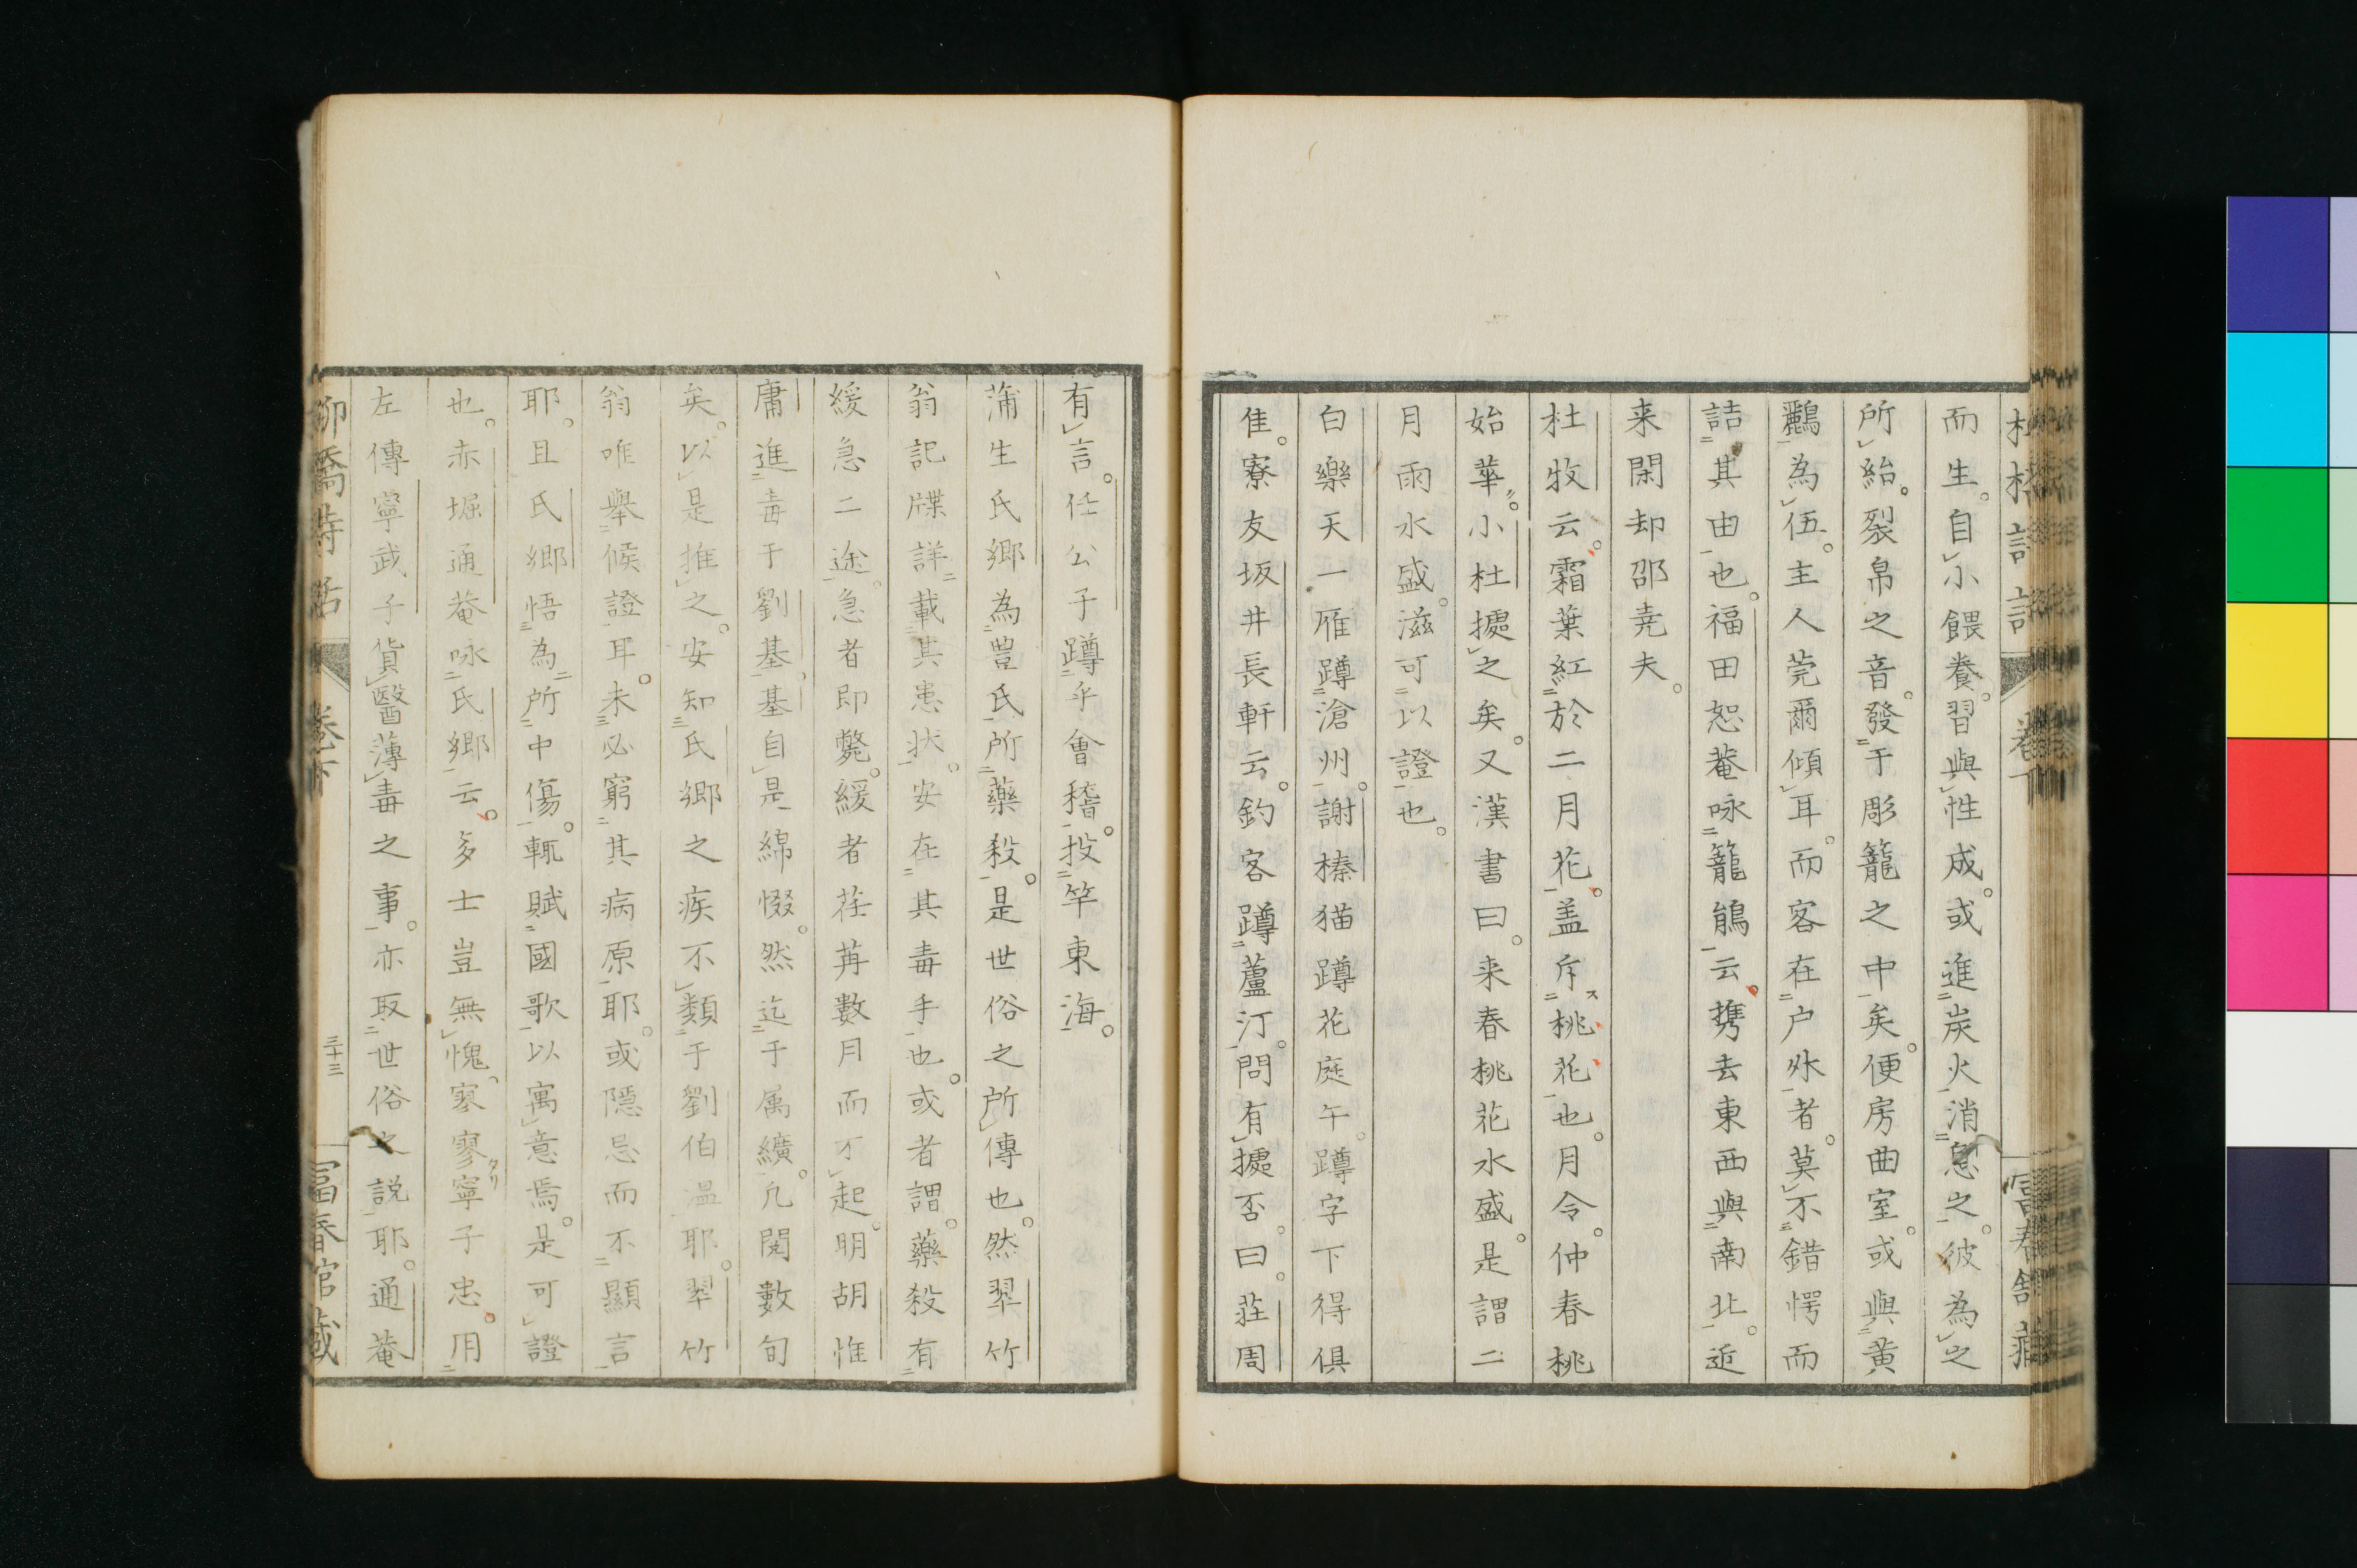 而生。自小餵養。習與性成。或進炭火消息之。彼為之
所紿。裂帛之音。發于彫籠之中矣。便房曲室。或與黄
鸝為伍。主人莞爾傾耳。而客在户外者。莫不錯愕而
詰其由也。福田恕菴咏籠鵑云。携去東西與南北。近
来閑却邵尭夫。
杜牧云。霜葉紅於二月花。盖斥桃花也。月令。仲春桃
始華。小杜㨿之矣。又漢書曰。来春桃花水盛。是謂二
月雨水盛。滋可以證也。
白樂天一雁蹲滄州。謝榛猫蹲花庭午。蹲字下得俱
佳。寮友坂井長軒云。釣客蹲蘆汀。問有㨿否。曰。莊周
有言。任公子蹲乎會稽。投竿東海。
蒲生氏郷為豊氏所藥殺。是世俗之所傳也。然翠竹
翁記牒詳載其患状。安在其毒手也。或者謂。藥殺有
緩急二途。急者即斃。緩者荏苒數月而不起。明胡惟
庸進毒于劉基。基自是綿惙。然迄于属纊。凢閲數旬
矣。以是推之。安知氏郷之疾不類于劉伯温耶。翠竹
翁唯舉候證耳。未必窮其病原耶。或隱忌而不顯言
耶。且氏郷悟為所中傷。輙賦國歌以寓意焉。是可證
也。赤堀通菴咏氏郷云。多士豈無愧。寥寥寧子忠。用
左傳寧武子貨醫薄毒之事。亦取世俗之説耶。通菴
柳橋詩話 卷下 三十三 冨春館藏